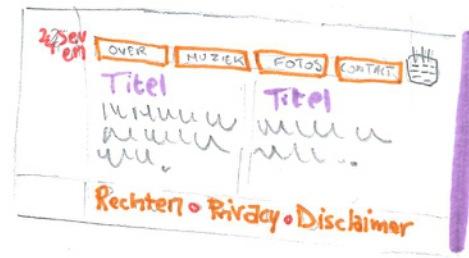 OVER MUZIEK FOTOS CONTACT
Titel Titel
Rechten • Privacy • Disclaimer